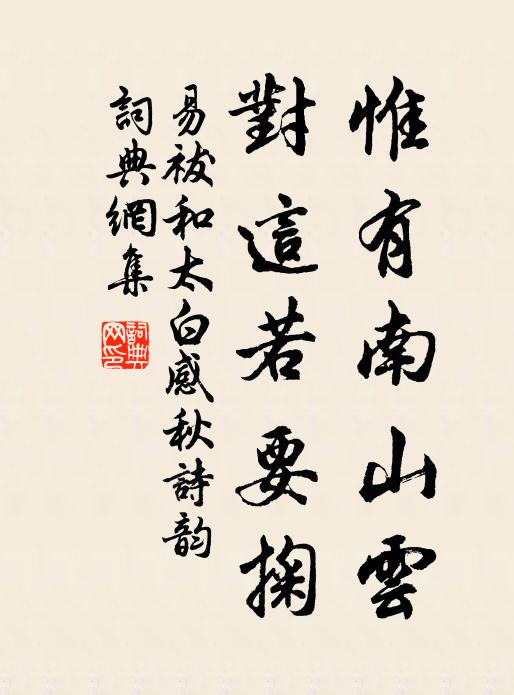 惟有南山雲
對這若要掬
易祓和太白感秋詩韵
詞典網集
詞典網印